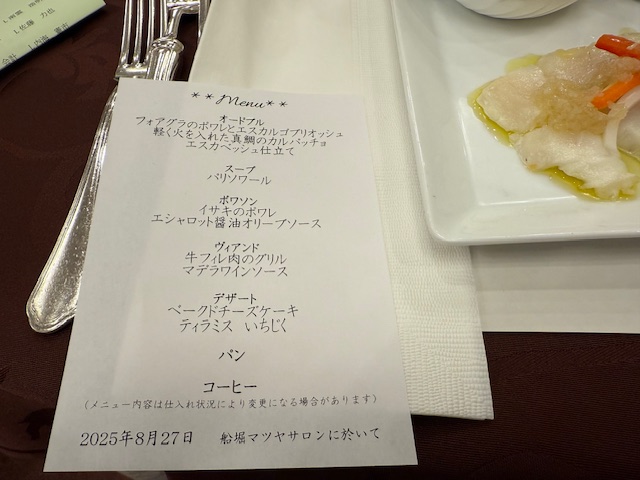 L佐藤 力也
** Menu **
オードブル
フォアグラのポワレとエスカルゴブリオッシュ
軽く火を入れた真鯛のカルパッチョ
エスカベッシュ仕立て
スープ
パリソワール
ポワソン
イサキのポワレ
エシャロット醤油オリーブソース
ヴィアンド
牛フィレ肉のグリル
マデラワインソース
デザート
ベークドチーズケーキ
ティラミス いちじく
パン
コーヒー
(メニュー内容は仕入れ状況により変更になる場合があります)
2025年8月27日 船堀マツヤサロンに於いて